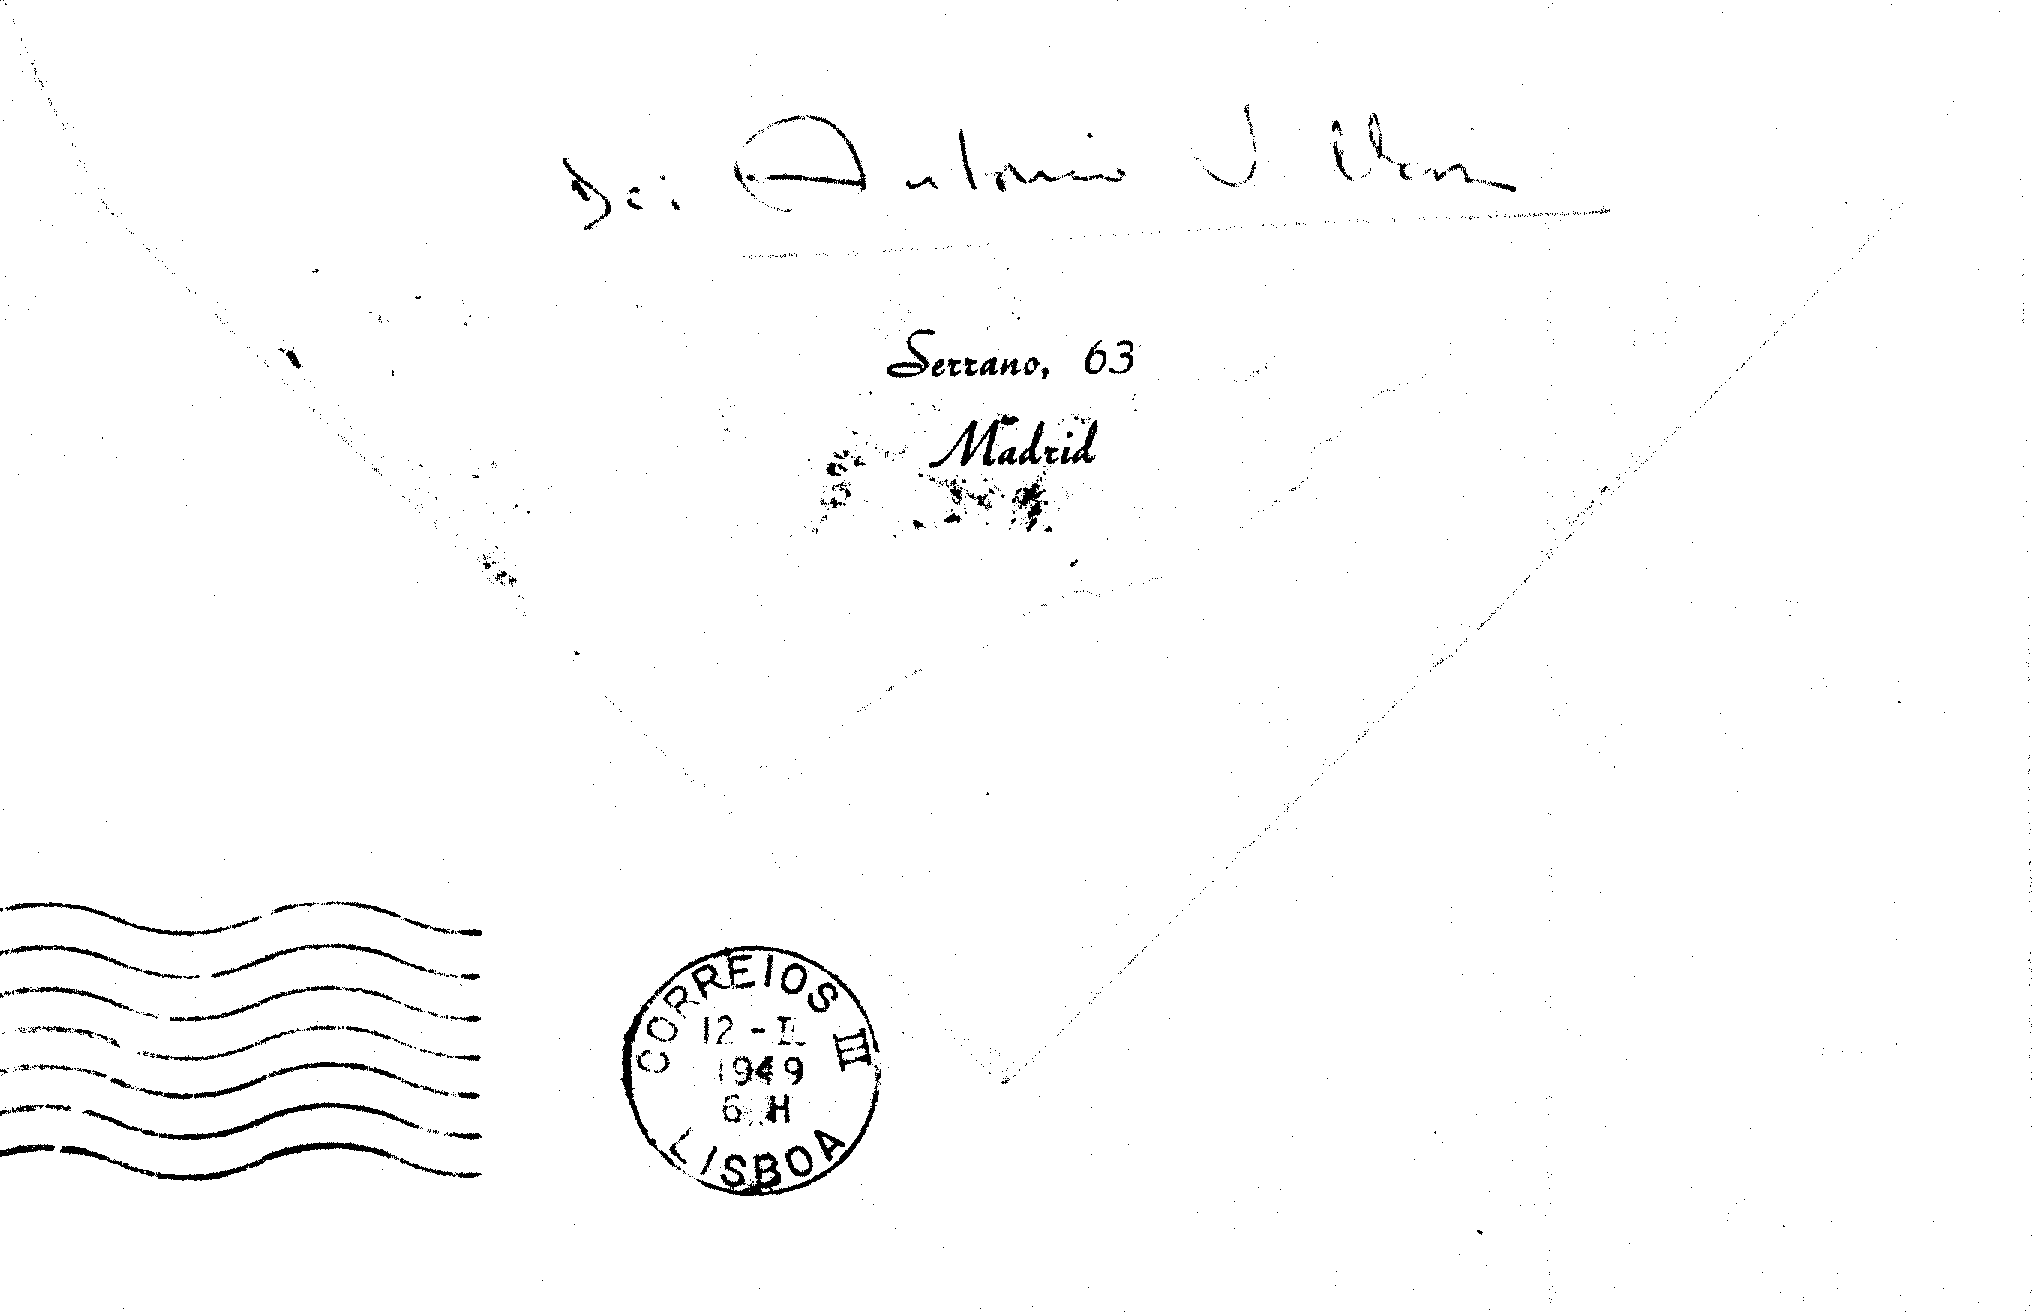 De: Antonio
Serrano, 63
Madrid
CORREIOS III
12 - II
1949
6 H
LISBOA